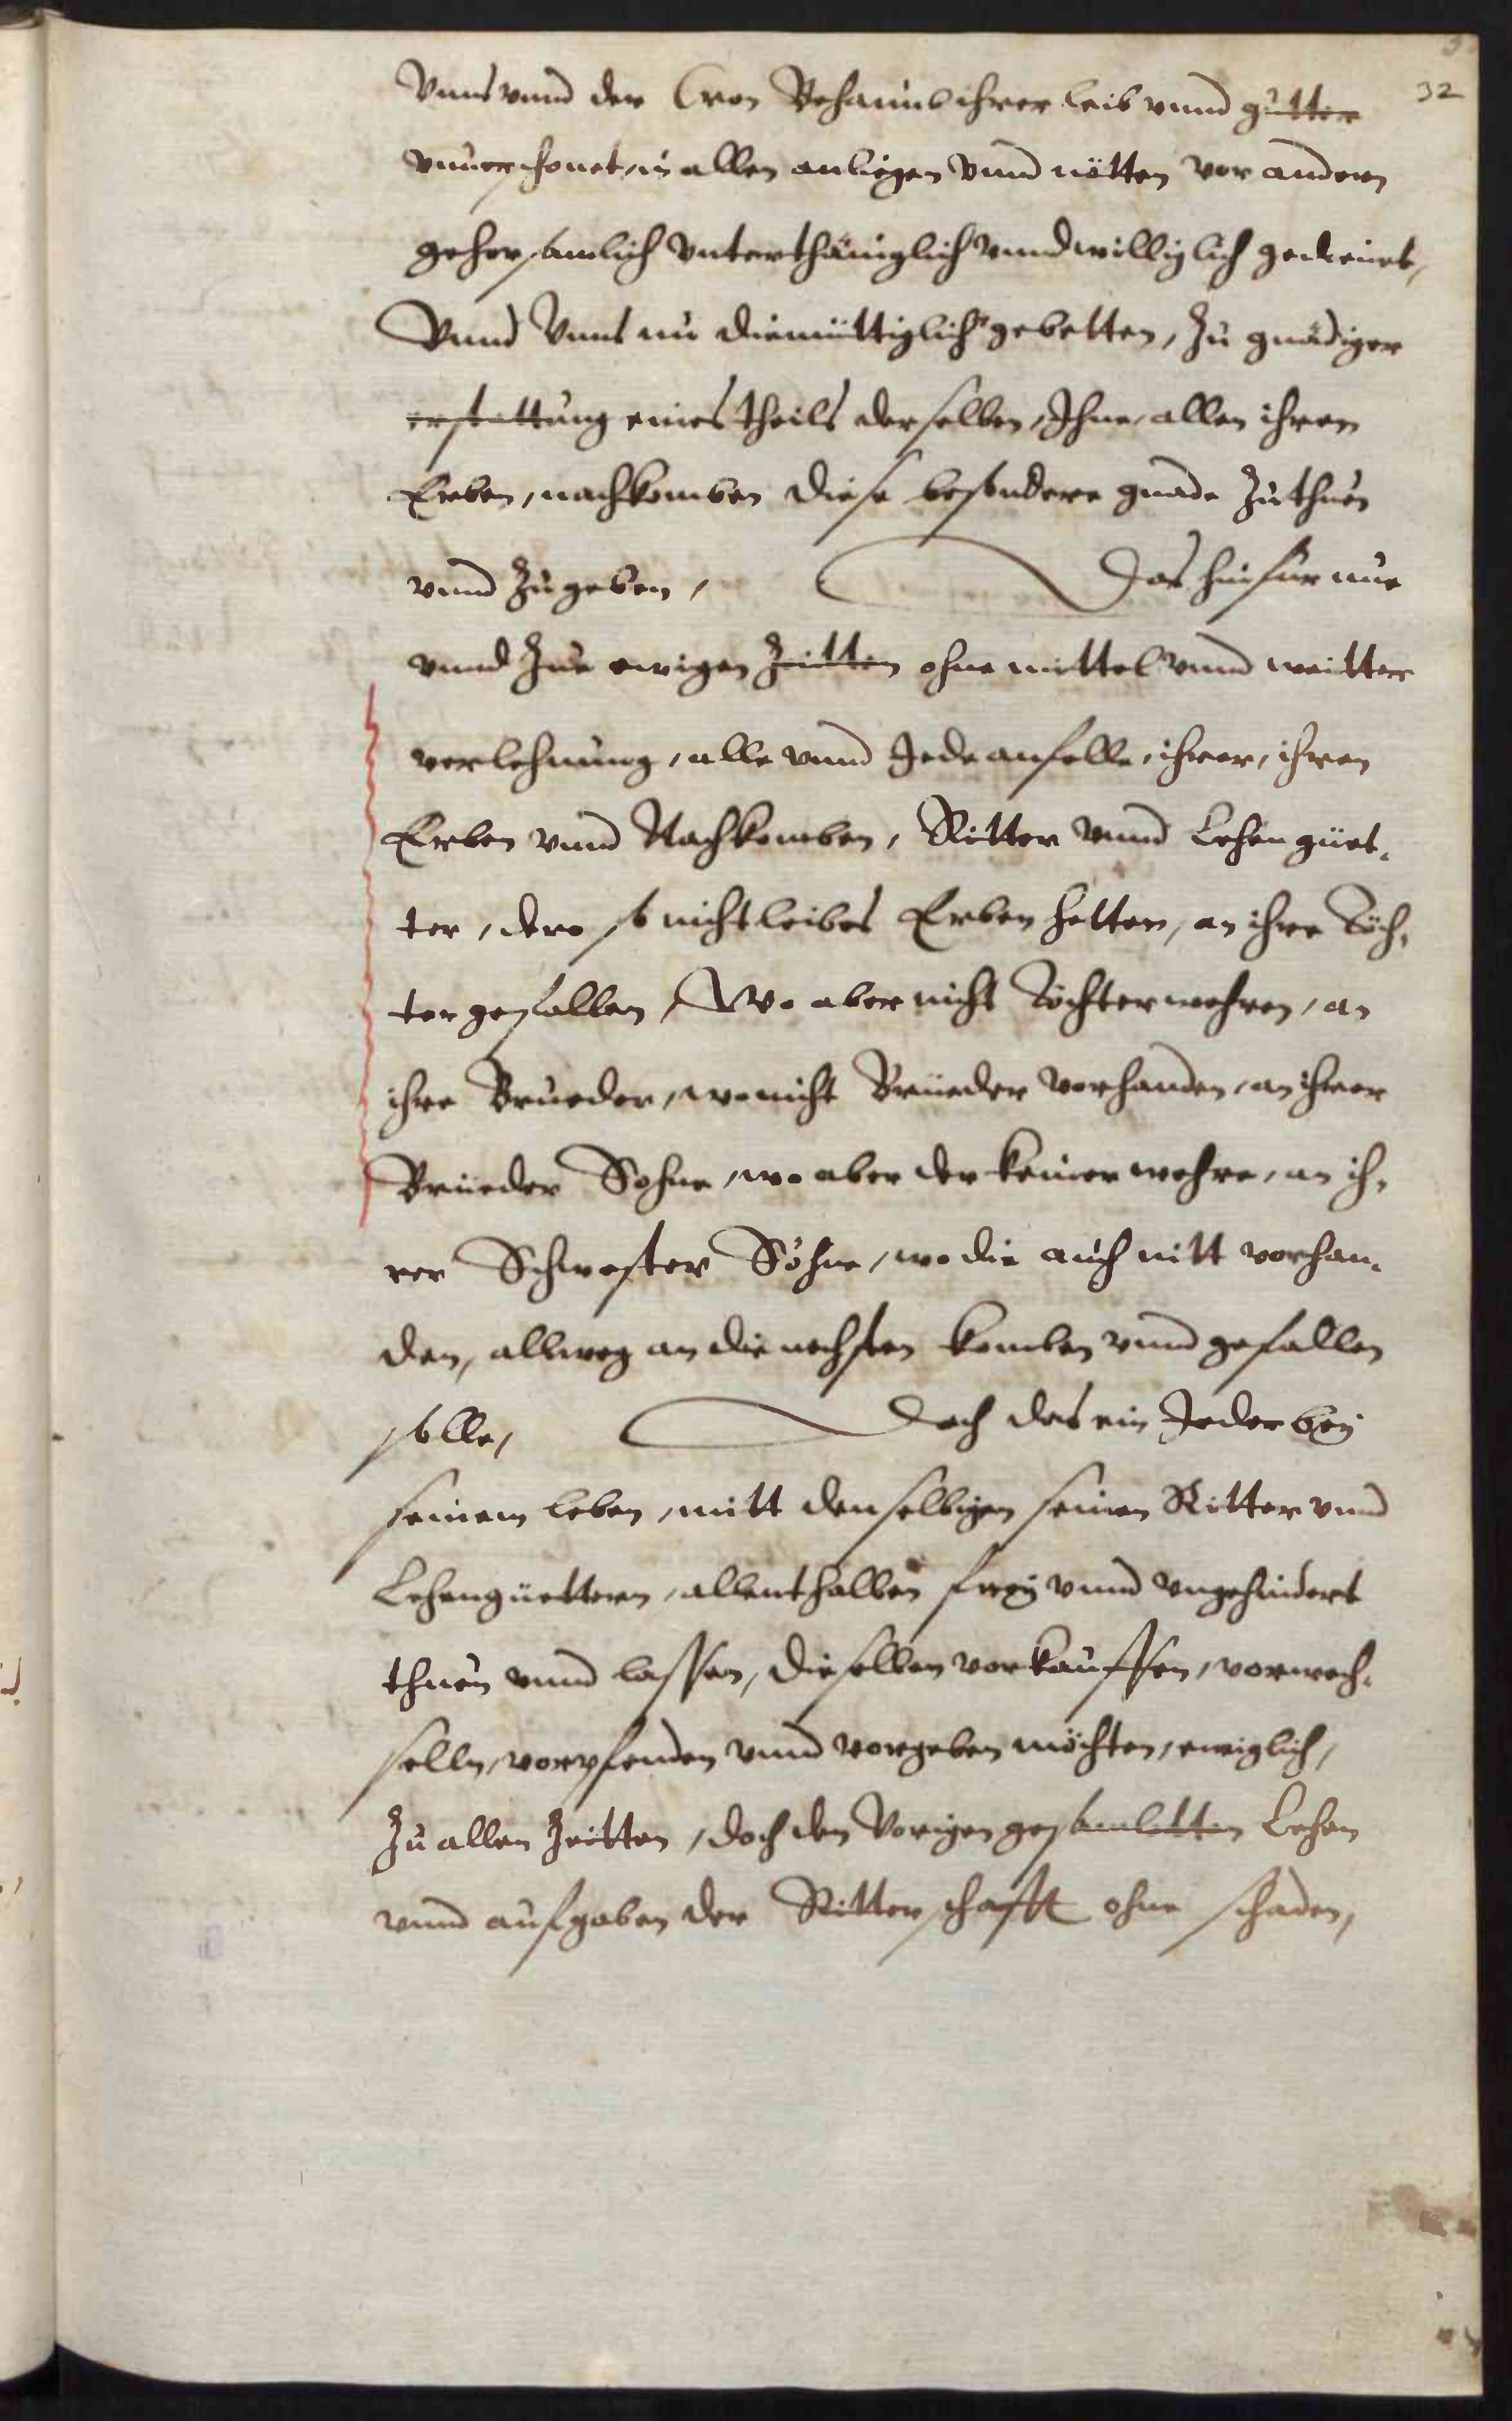 32
Vnns vnnd der Cron Behaimb ihrer leib vnnd gütter
vnuerschonet, in allen anliegen vnnd nötten vor andern
gehorsamlich vnterthäniglich vnnd williglich gedienet,
Vnnd Vnns nu diemüttiglich gebetten, Zu gnädiger
erstattung eines theils derselben, Ihne, allen ihren
Erben, nachkomben diese besondere gnade Zuthuen
vnnd Zugeben, Das hinfür nue
vnnd Zue ewigen Zeitten ohne mittel vnnd weitter
verlehnung, alle vnnd Jede anfelle, ihrer, ihren
Erben vnnd Nachkomben, Ritter vnnd Lehengüet-
ter, dero so nicht leibes Erben hetten, an ihre Töch-
ter gefallen, Wo aber nicht Töchter wehren, an
ihre Brueder, wo nicht Brüeder vorhanden, an ihrer
Brüeder Sohne, wo aber der keiner wehre, an ih-
rer Schwester Söhne, wo die auch nitt vorhan-
den, allweg an die nechsten komben vnnd gefallen
solle, Doch das ein Jeder bey
seinem leben, mitt denselbigen seinen Ritter vnnd
Lehengüettern, allenthalben frey vnnd vngehindert
thuen vnnd lassen, dieselben vorkauffen, vorwech-
selln, vorpfenden vnnd vorgeben möchten, ewiglich,
Zu allen Zeitten, doch den Vorigen gesambletten Lehen
vnnd aufgaben der Ritterschafft ohne schaden,